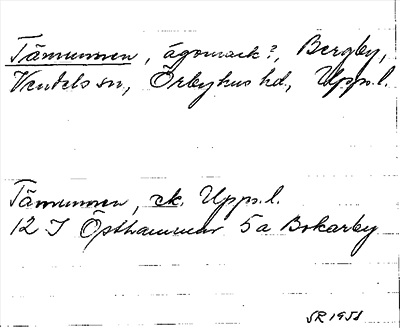 Tämunnen, ägomark?, Bergby,
Vendels sn, Örbyhus hd, Upps.l.
Tämunnen, ek. Upps.l.
12 I Östhammar 5a Bokarby
SR 1951